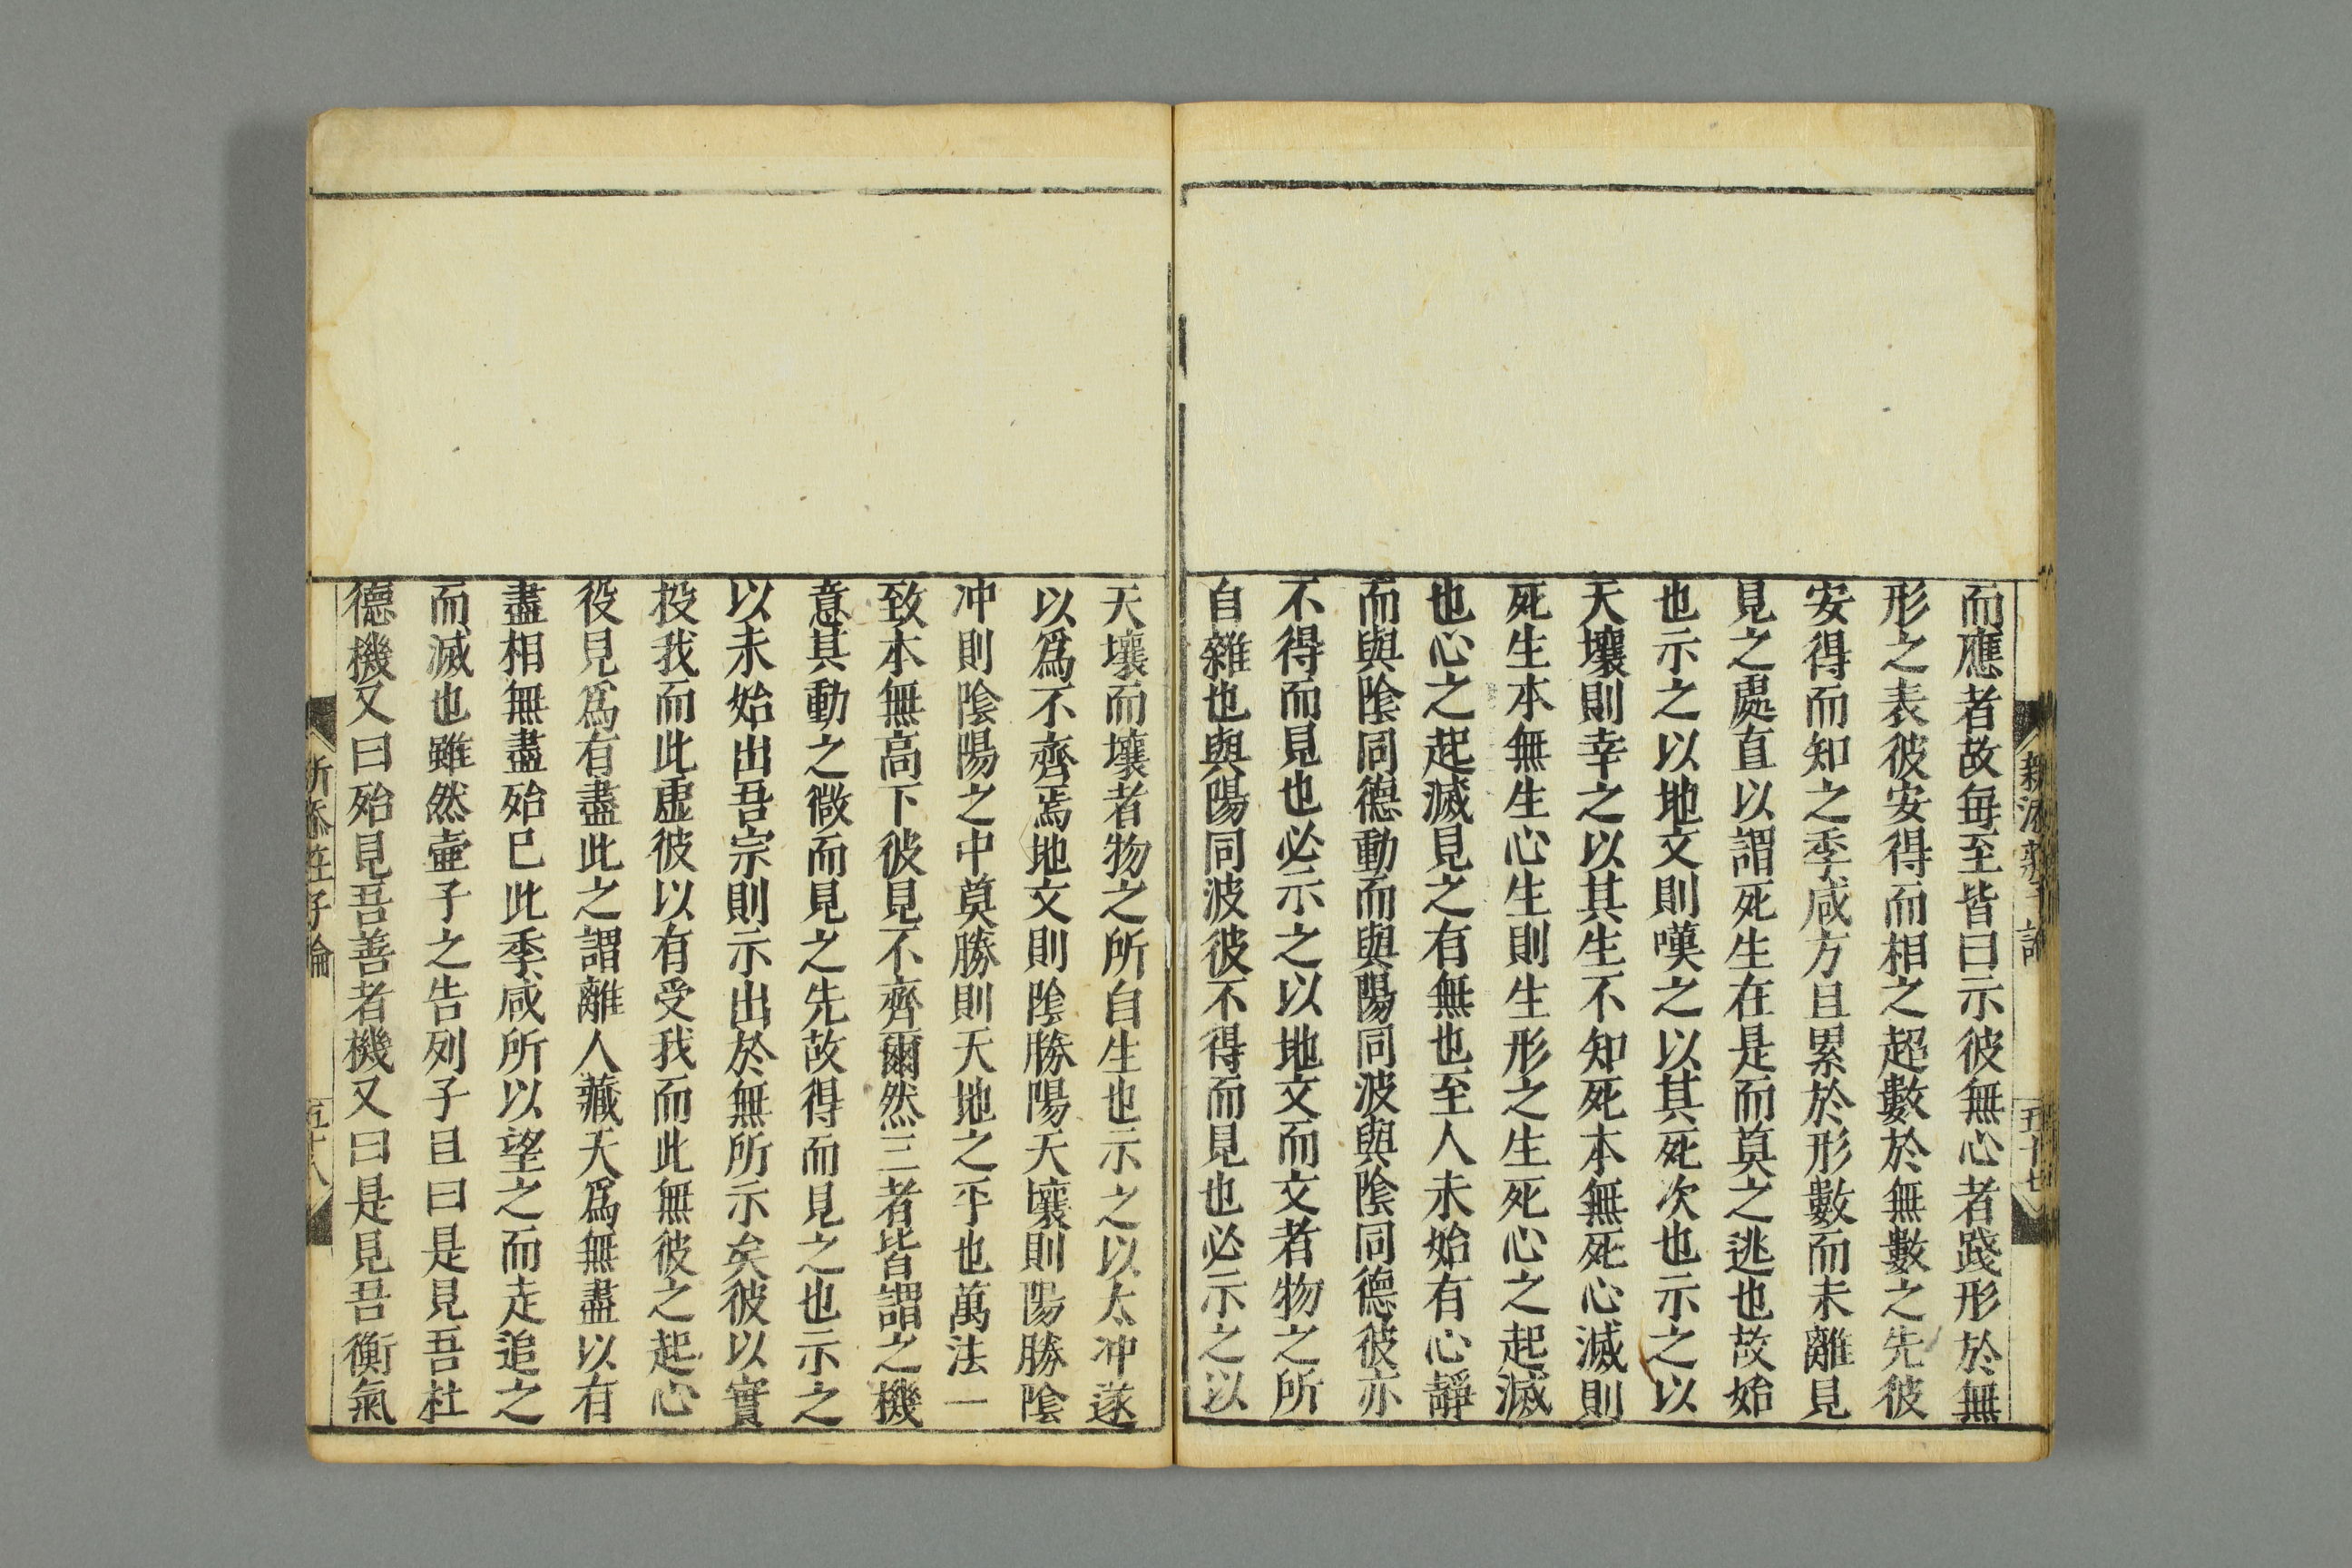 而應者故每至皆曰示彼無心者踐形於無
形之表彼安得而相之超數於無數之先彼
安得而知之季咸方且累於形數而未離見
見之處直以謂死生在是而莫之逃也故始
也示之以地文則嘆之以其死次也示之以
天壤則幸之以其生不知死本無死心滅則
死生本無生心生則生形之生死心之起滅
也心之起滅見之有無也至人未始有心靜
而與陰同德動而與陽同波與陰同德彼亦
不得而見也必示之以地文而文者物之所
自雜也與陽同波彼不得而見也必示之以
五十七
天壤而壤者物之所自生也示之以太冲遂
以爲不齊焉地文則陰勝陽天壤則陽勝陰
冲則陰陽之中莫勝則天地之平也萬法一
致本無高下彼見不齊爾然三者皆謂之機
意其動之微而見之先故得而見之也示之
以未始出吾宗則示出於無所示矣彼以實
投我而此虛彼以有受我而此無彼之起心
役見爲有盡此之謂離人藏天爲無盡以有
盡相無盡殆已此季咸所以望之而走追之
而滅也雖然壷子之告列子且曰是見吾杜
德機又曰殆見吾善者機又曰是見吾衡氣
五十八